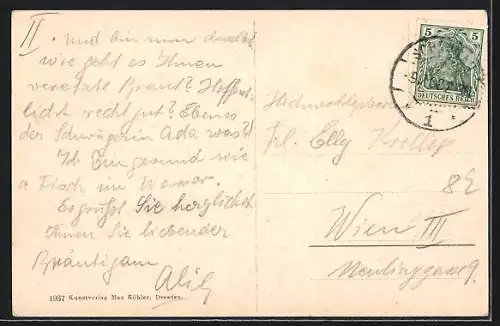 II
Und bin nun
wie geht es Ihnen
verehrte Braut? Hoffent-
lich recht gut? Ebenso
der Schwägerin Ada was?
Ich bin gesund wie
a Fisch im Wasser.
Es grüßt Sie herzlichst
Ihnen Sie liebender
Bräutigam
1937 Kunstverlag Max Köhler, Dresden.
5 5
DEUTSCHES REICH
1
Hochwohlgeboren
Frl. Elly
82
Wien III
9.